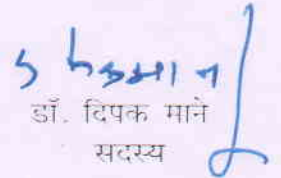 डॉ. दिपक माने
सदस्य